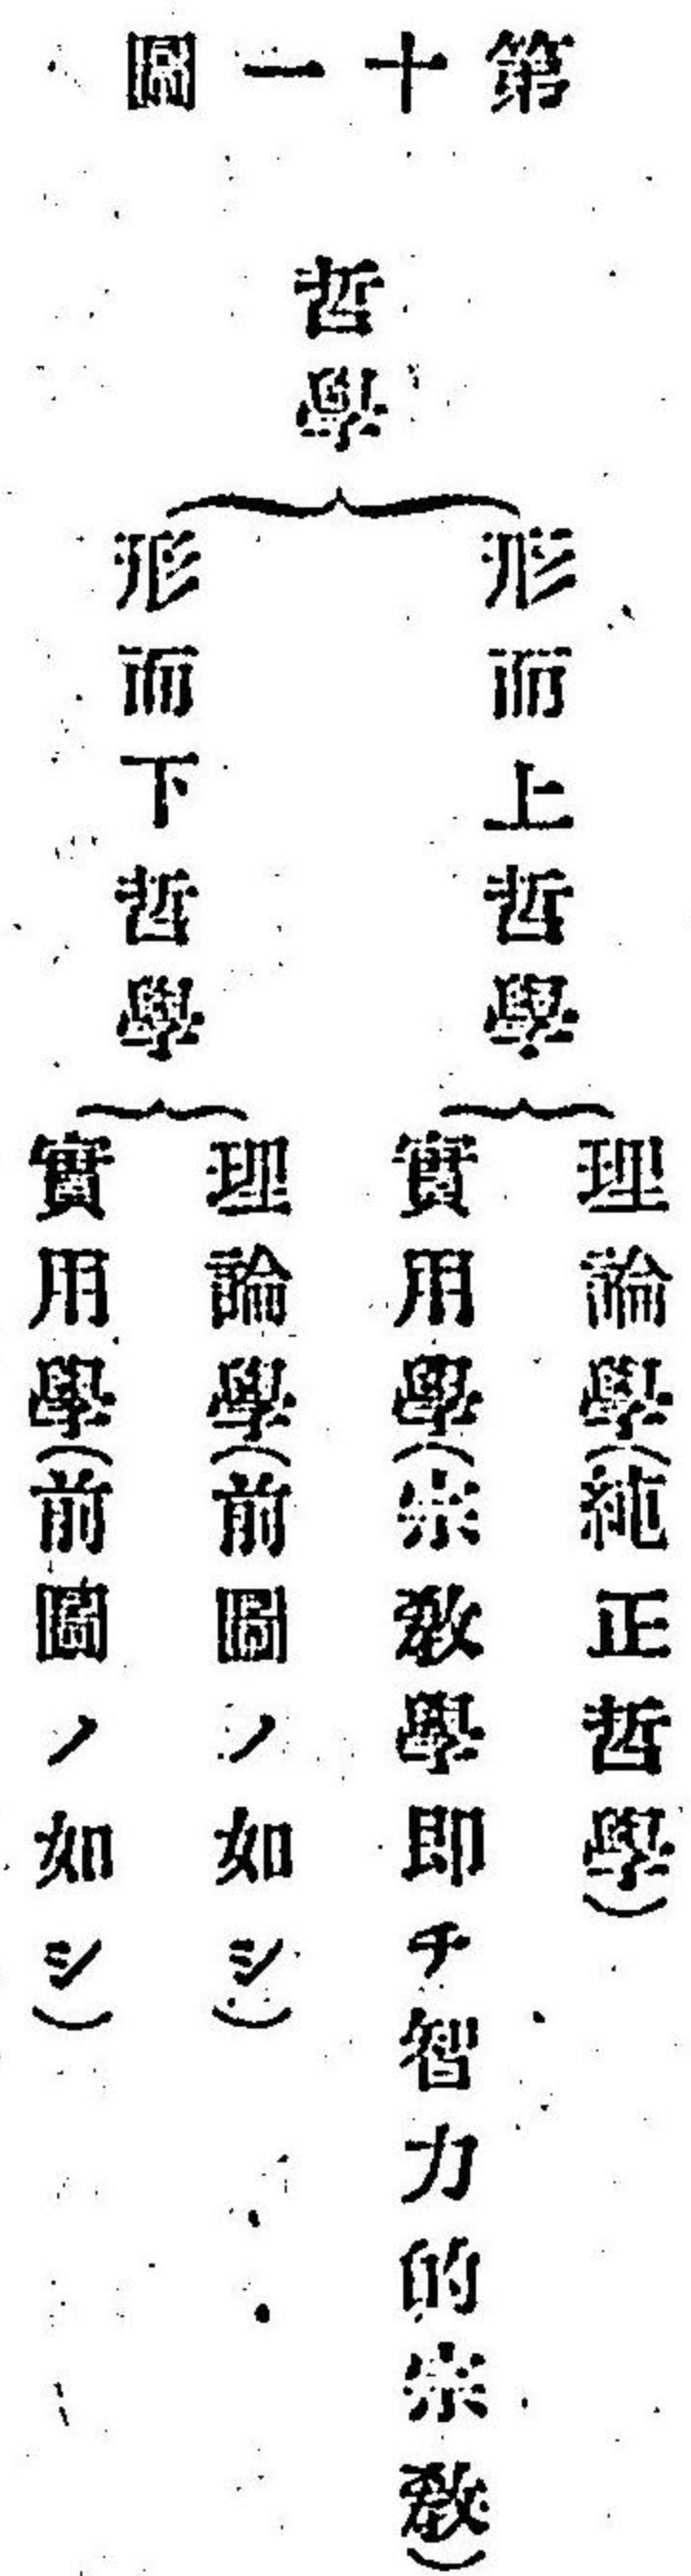 第十一圖
哲學
形而上哲學
理論學(純正哲學)
實用學(宗敎學即チ智力的宗敎)
形而下哲學
理論學(前圖ノ如シ)
實用學(前圖ノ如シ)